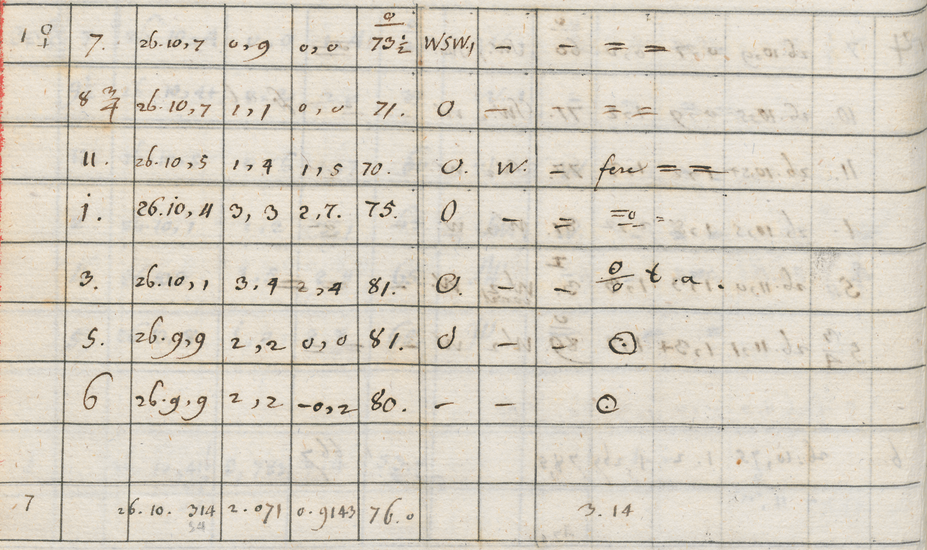 1 0/1 7. 26.10,7 0,9 0,0 0 73½ WSW,1 – – = =
8 ¾ 26.10,7 1,1 0,0 71. O. – – = =
11. 26.10,5 1,4 1,5 70. O. W. – fere = =
1. 26.10,4 3,3 2,7. 75. O – = =o=
3. 26.10,1 3,4 2,4 81. O. – – 0/0 t a.
5. 26.9,9 2,2 0,0 81. O – – ☉
6 26.9,9 2,2 –0,2 80. – – ☉
7 26.10.314 2.071 0.9143 76.0 3.14
34